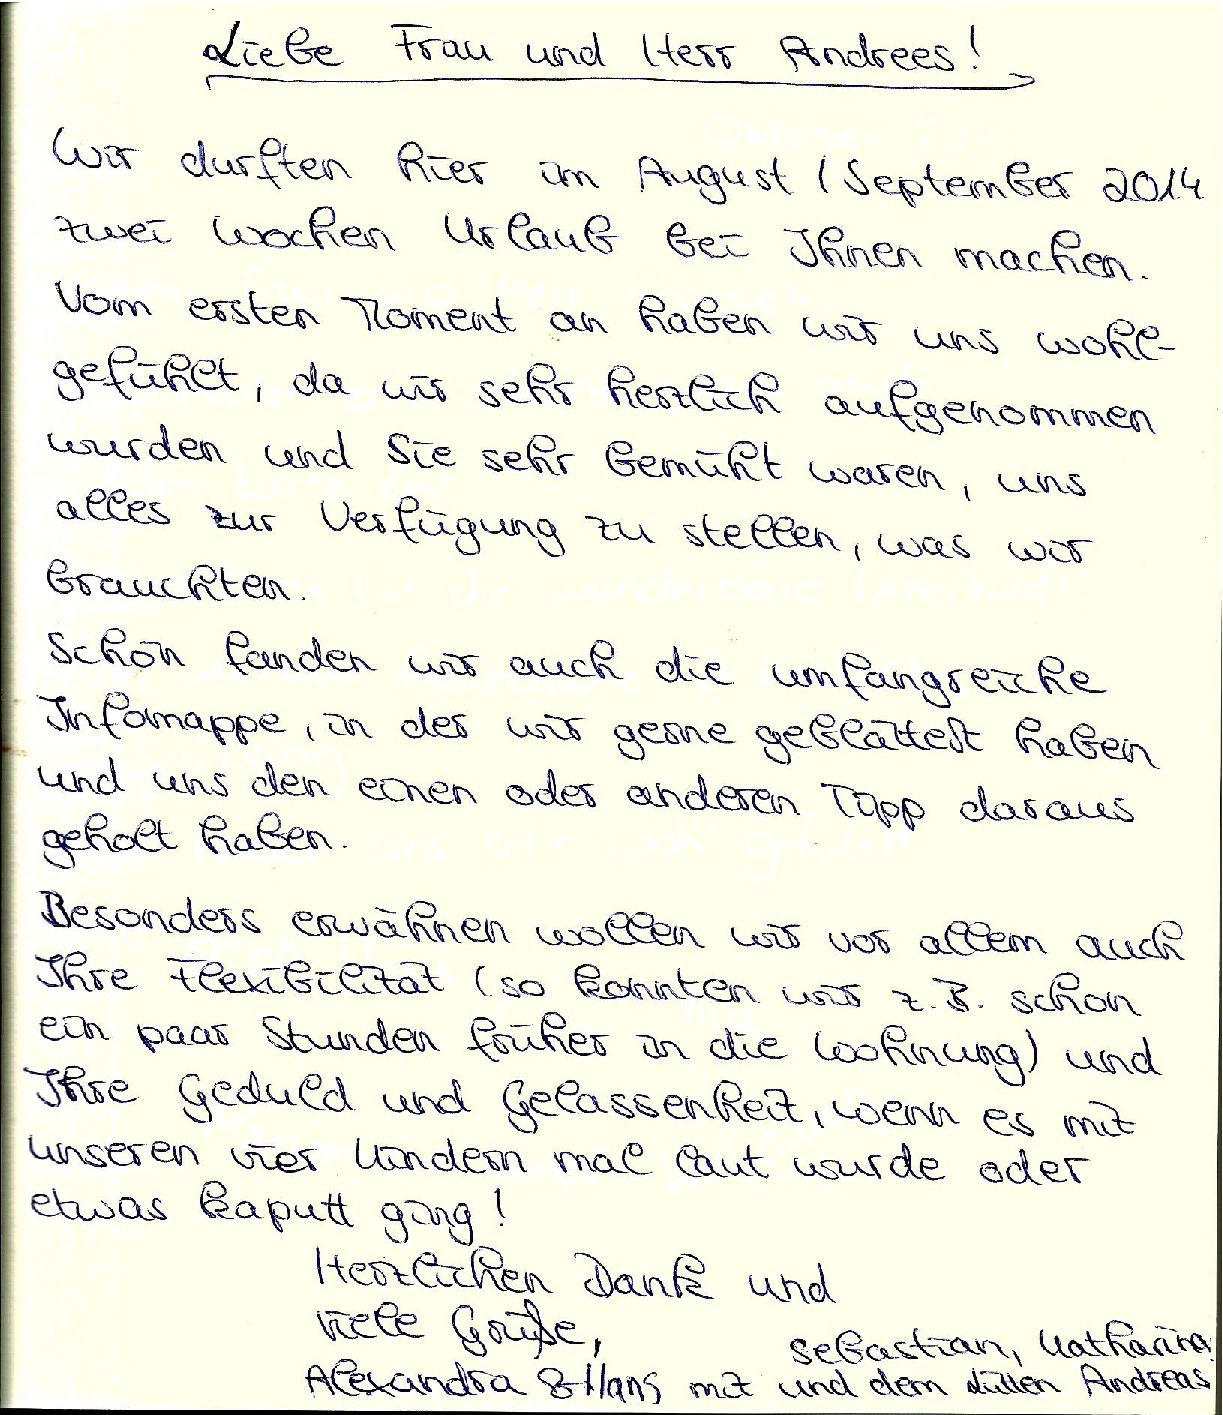 Liebe Frau und Herr Andrees!
Wir durften hier im August / September 2014
zwei Wochen Urlaub bei Ihnen machen.
Vom ersten Moment an haben wir uns wohl-
gefühlt, da wir sehr herzlich aufgenommen
wurden und Sie sehr bemüht waren, uns
alles zur Verfügung zu stellen, was wir
brauchten.
Schön fanden wir auch die umfangreiche
Infomappe, in der wir gerne geblättert haben
und uns den einen oder anderen Tipp daraus
geholt haben.
Besonders erwähnen wollen wir vor allem auch
Ihre Flexibilität (so konnten wir z.B. schon
ein paar Stunden früher in die Wohnung) und
Ihre Geduld und Gelassenheit, wenn es mit
unseren vier Kindern mal laut wurde oder
etwas kaputt ging!
Herzlichen Dank und
viele Grüße,
Alexandra & Hans mit Sebastian, Katharina
und dem Andreas